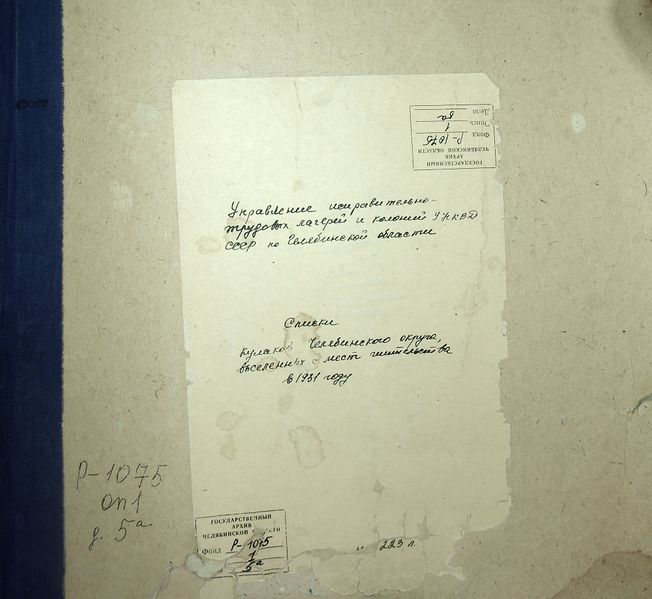 ГОСУДАРСТВЕННЫЙ
АРХИВ
ЧЕЛЯБИНСКОЙ ОБЛАСТИ
Фонд Р-1075
Опись 1
Дело 5а
Управление исправительно-
трудовых лагерей и колоний УНКВД
СССР по Челябинской области
Списки
кулаков Челябинского округа,
выселенных с мест жительства
в 1931 году
Р-1075
оп1
д. 5а
ГОСУДАРСТВЕННЫЙ
АРХИВ
ЧЕЛЯБИНСКОЙ
Фонд Р-1075
1
5а
223 л.